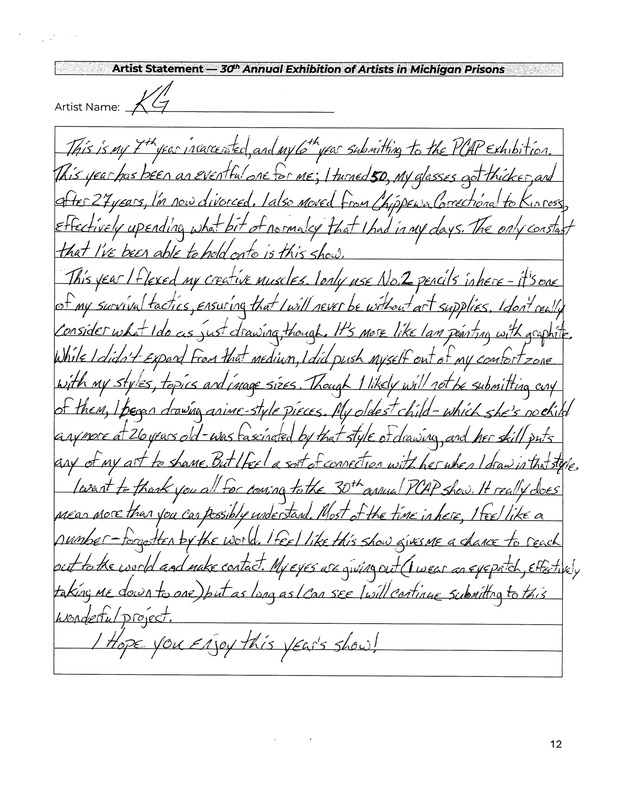 Artist Statement — 30th Annual Exhibition of Artists in Michigan Prisons
Artist Name: KG
This is my 7th year incarcerated, and my 6th year submitting to the PCAP Exhibition.
This year has been an eventful one for me; I turned 50, my glasses got thicker, and
after 27 years, I'm now divorced. I also moved from Chippewa Correctional to Kinross,
effectively upending what bit of normalcy that I had in my days. The only constant
that I've been able to hold onto is this show.
This year I flexed my creative muscles. I only use No.2 pencils in here - it's one
of my survival tactics, ensuring that I will never be without art supplies. I don't really
consider what I do as just drawing, though. It's more like I am painting with graphite.
While I didn't expand from that medium, I did push myself out of my comfort zone
with my styles, topics and image sizes. Though I likely will not be submitting any
of them, I began drawing anime-style pieces. My oldest child - which she's no child
anymore at 26 years old - was fascinated by that style of drawing, and her skill puts
any of my art to shame. But I feel a sort of connection with her when I draw in that style.
I want to thank you all for coming to the 30th annual PCAP show. It really does
mean more than you can possibly understand. Most of the time in here, I feel like a
number - forgotten by the world. I feel like this show gives me a chance to reach
out to the world and make contact. My eyes are giving out (I wear an eyepatch, effectively
taking me down to one) but as long as I can see I will continue submitting to this
wonderful project.
I Hope you enjoy this year's show!
12